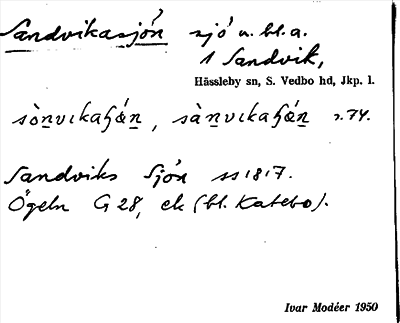 Sandvikasjön sjö u. bl. a.
1 Sandvik,
Hässleby sn, S. Vedbo hd, Jkp. l.
sònvıkaɧǿn, sànvıkaɧǿn s. 74.
Sandviks Sjön ss 1817.
Ögeln G 28, ek (bl. Katebo).
Ivar Modéer 1950